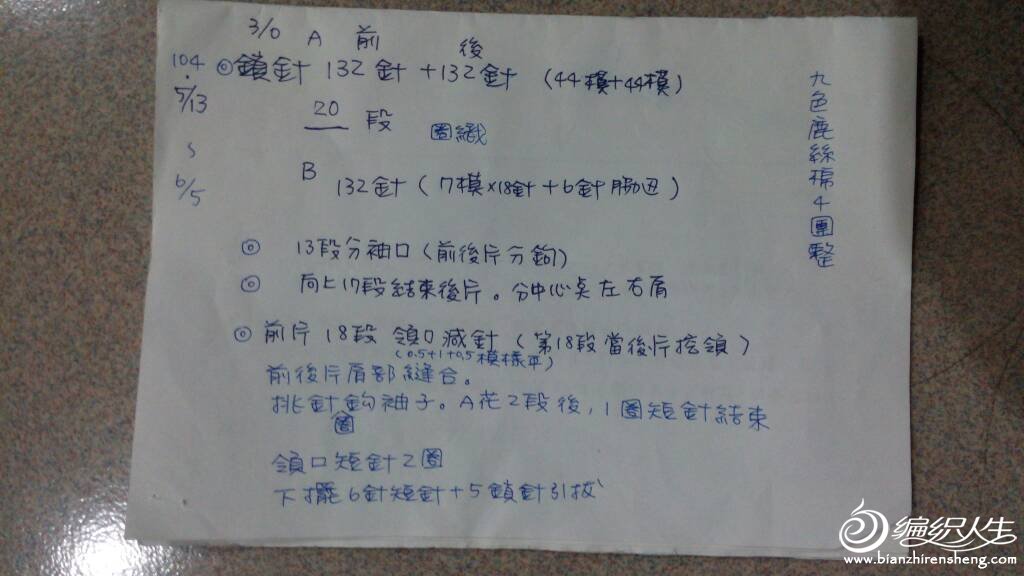 3/0 A 前 後
104
5/13
6/5
◎鎖針 132針+132針 (44模+44模)
20 段 圈織
B 132針(7模×18針+6針脇边)
◎ 13段分袖口(前後片分鉤)
◎ 向上17段結束後片。分中心吴左右肩
◎ 前片 18段 領口減針(第18段當後片挖領)
(0.5+1+0.5模樣平)
前後片肩部縫合。
挑針鈎袖子。A花2段後,1圈短針結束
圈
領口短針2圈
下擺6針短針+5鎖針引拔
九色鹿絲棉4團整
编织人生
www.bianzhirensheng.com